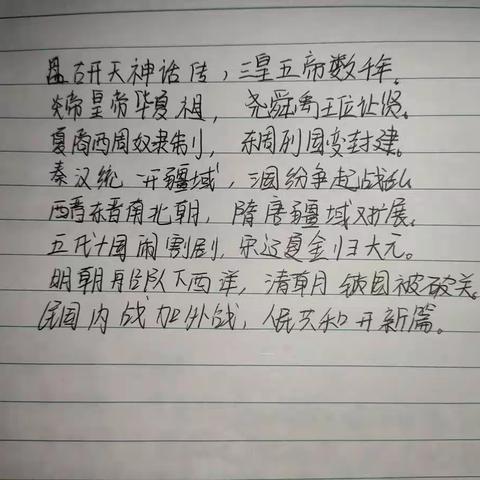 盘古开天神话传，三皇五帝数千年。
炎帝皇帝华夏祖，尧舜禹王位让贤。
夏商西周奴隶制，东周列国变封建。
秦汉统一开疆域，三国纷争起战乱
西晋东晋南北朝，隋唐疆域又扩展。
五代十国闹割剧，宋辽夏金归大元。
明朝船队下西洋，清朝锁国被破关。
民国内战加外战，人民共和开新篇。